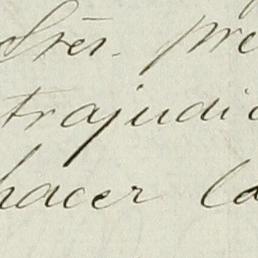 Sres. pre
trajudic
hacer la